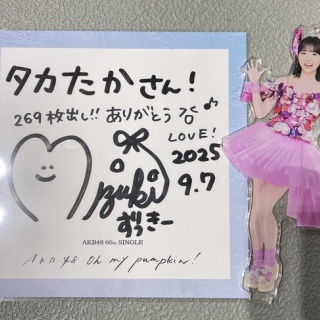 タカたかさん！
269枚出し!! ありがとう
LOVE!
2025
9.7
Izuki
ずっきー
AKB48 66th SINGLE
AKB48 Oh my pumpkin!